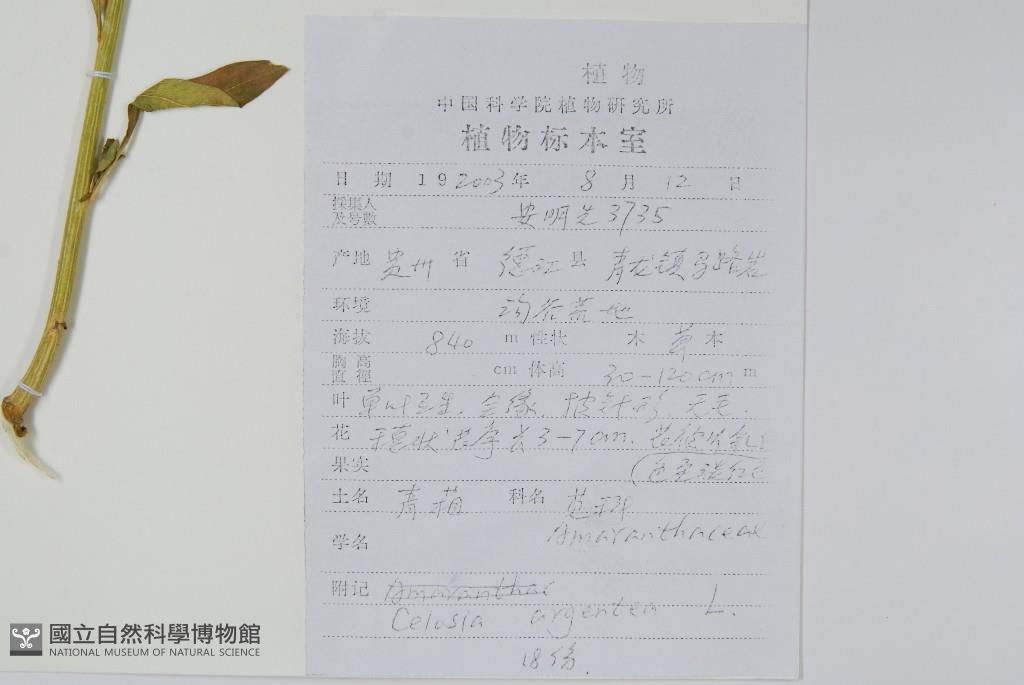 植物
中国科学院植物研究所
植物标本室
日期 19 2003年 8月 12 日
採集人及号數 安明先3735
产地 贵州 省 德江 县 青龙镇马路岩
环境 沟谷荒地
海拔 840 m 性状 木 草 本
胸高直徑 cm 体高 30-120cm m
叶 单叶互生. 全缘. 披针形. 无毛.
花 穗状花序长3-7cm.
果实
土名 青葙 科名 苋科
学名 Amaranthaceae
附记
Celosia argentea L.
18份.
國立自然科學博物館
NATIONAL MUSEUM OF NATURAL SCIENCE